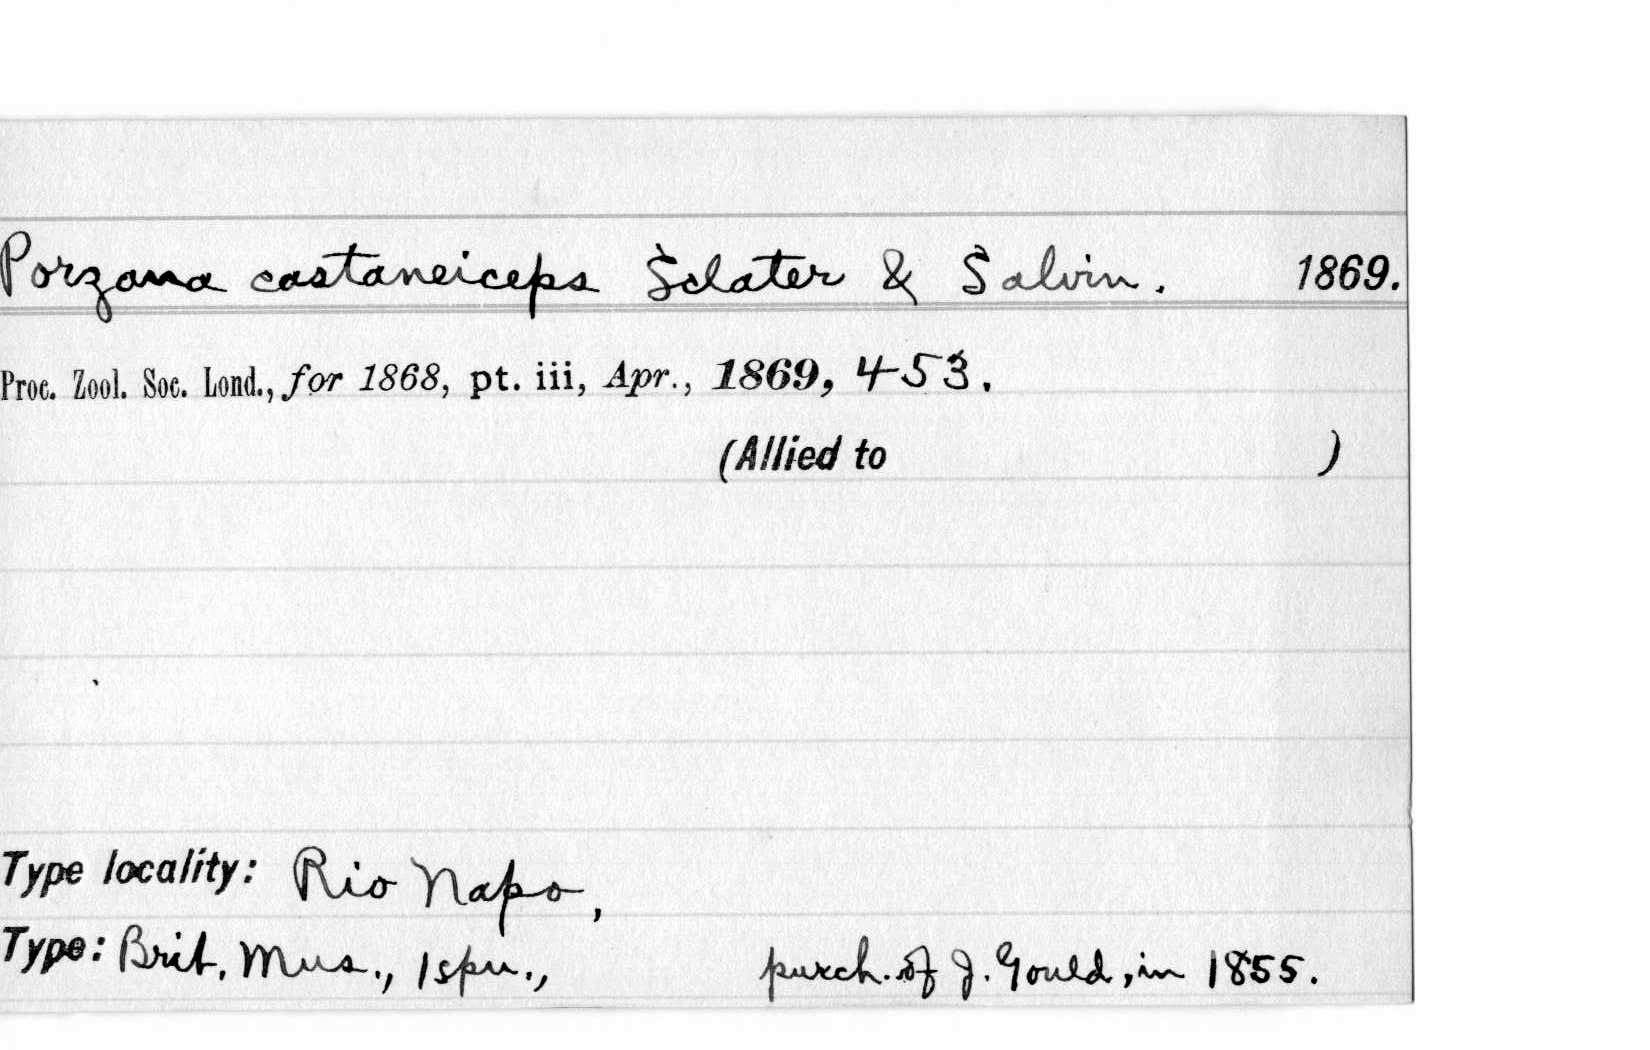 Porzana castaneiceps Sclater & Salvin. 1869.
Proc. Zool. Soc. Lond., for 1868, pt. iii, Apr., 1869, 453.
(Allied to )
Type locality: Rio Napo,
Type: Brit. Mus., 1 spu., purch. of J. Gould, in 1855.